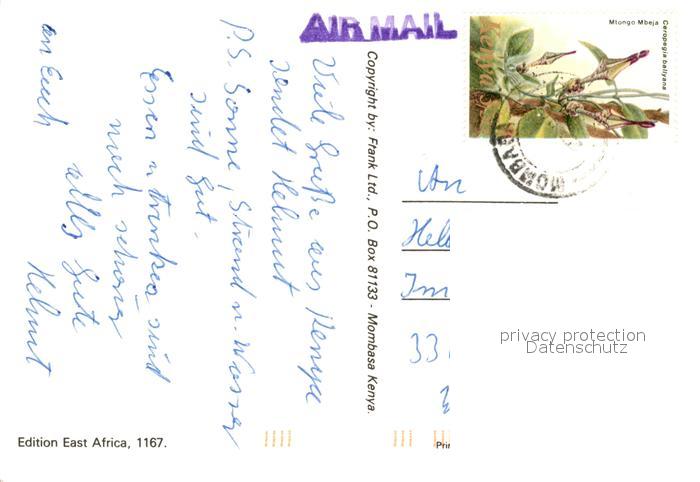 AIR MAIL
Kenya
Mtongo Mbeja
Ceropegia ballyana
MOMBAS
Viele Grüße aus Kenya
sendet Helmut
P.S. Sonne, Strand u. Wasser
sind gut.
Essen u. Trinken sind
noch schöner
alles Gute
an Euch
Helmut
Copyright by: Frank Ltd., P.O. Box 81133 - Mombasa Kenya.
An
Hel
Im
33
privacy protection
Datenschutz
Edition East Africa, 1167.
Prin